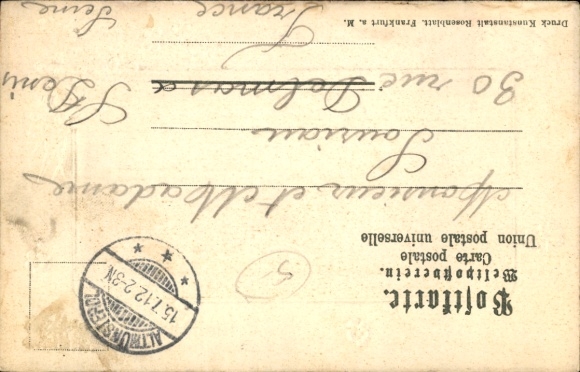 Postkarte.
Weltpostverein.
Carte postale
Union postale universelle
5
15.7.12.2-3N
Monsieur et Madame
30 rue
St Denis
Seine
France
Druck Kunstanstalt Rosenblatt. Frankfurt a. M.